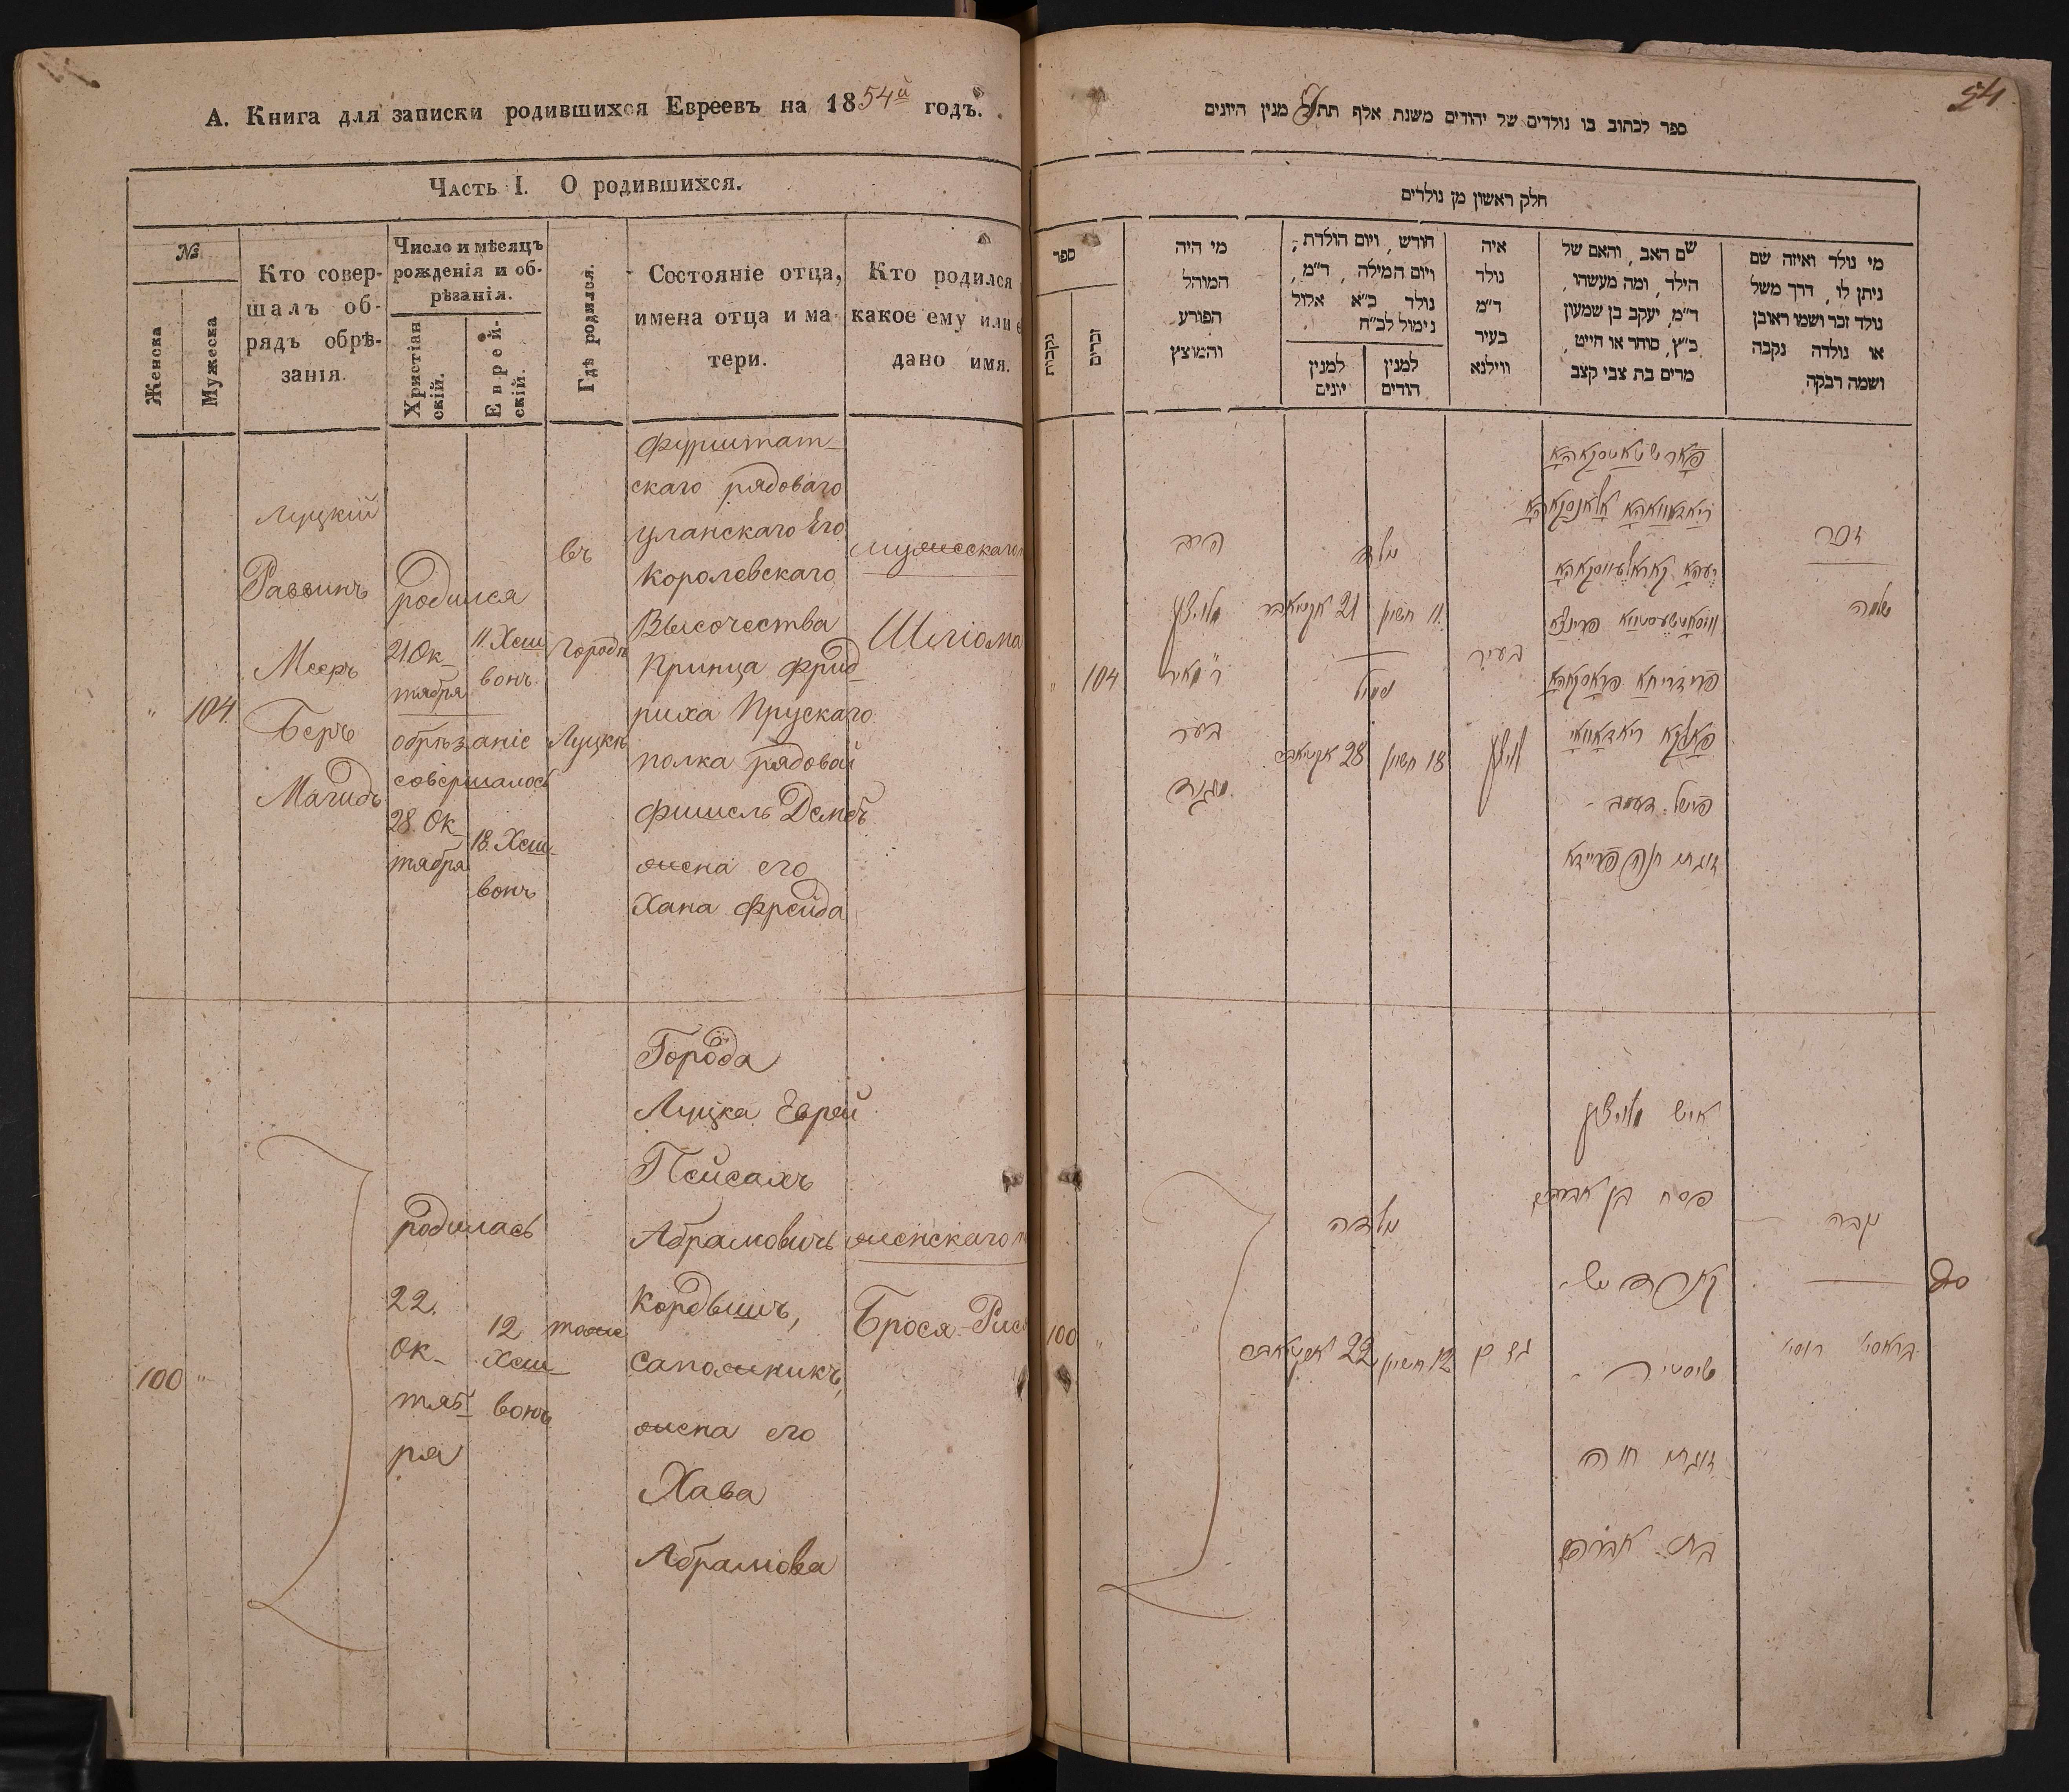 А. Книга для записки родившихся Евреевъ на 1854й годъ.
Часть I. О родившихся.
№
Женска
Мужеска
Кто совер-
шалъ об-
рядъ обрѣ-
занія.
Число и мѣсяцъ
рожденія и об-
рѣзанія.
Христіан
скій.
Еврей-
скій.
Гдѣ родился.
Состояніе отца,
имена отца и ма
тери.
Кто родился
какое ему или
дано имя.
"
104.
Луцкій
Раввинъ
Мееръ
Беръ
Магидъ
родился
21 Ок-
тября
11. Хеш
вонъ.
обрѣзаніе
совершалось
28. Ок-
тября
18. Хеш-
вонъ
въ
Городѣ
Луцкѣ
фурштат-
скаго рядоваго
уланскаго Его
Королевскаго
Высочества
Принца Фрид-
риха Прускаго
полка рядовой
Фишель Дембъ
жена его
Хана Фрейда
мужескаго
Шліома
100
"
родилась
22.
Ок-
тяб-
ря
12
Хеш-
вонъ
тоже
Города
Луцка Еврей
Пейсахъ
Абрамовичъ
Кордышъ,
сапожникъ,
жена его
Хава
Абрамова
женскаго
Брося-Рис
54
ספר לכתוב בו נולדים של יהודים משנת אלף תת מנין היונים
חלק ראשון מן נולדים
מי נולד ואיזה שם
ניתן לו, דרך משל
נולד זכר ושמו ראובן
או נולדה נקבה
ושמה רבקה
שם האב, והאם של
הילד, ומה מעשהו,
ד״מ, יעקב בן שמעון
כ״ץ, סוחר או חייט,
מרים בת צבי קצב
איה
נולד
ד״מ
בעיר
ווילנא
חודש, ויום הולדת,
ויום המילה, ד״מ,
נולד כ״א אלול
נימול לכ״ח
למנין
הודים
למנין
יונים
מי היה
המוהל
הפורע
והמוצץ
ספר
זכרים
נקבות
זכר
שלמה
פישל דעמב
זוגתו חנה פריידא
בעיר
לויצק
נולד
11 חשון
21 אקטאבר
נימול
18 חשון
28 אקטאבר
הרב
מלויצק
ר׳ מאיר
בער
מגיד
104
"
נקבה
בראסי ריסי
איש מלויצק
פסח בן אברהם
קארדיש
זוגתו חוה
בת אברהם
גם כן
נולדה
12 חשון
22 אקטאבר
100
"